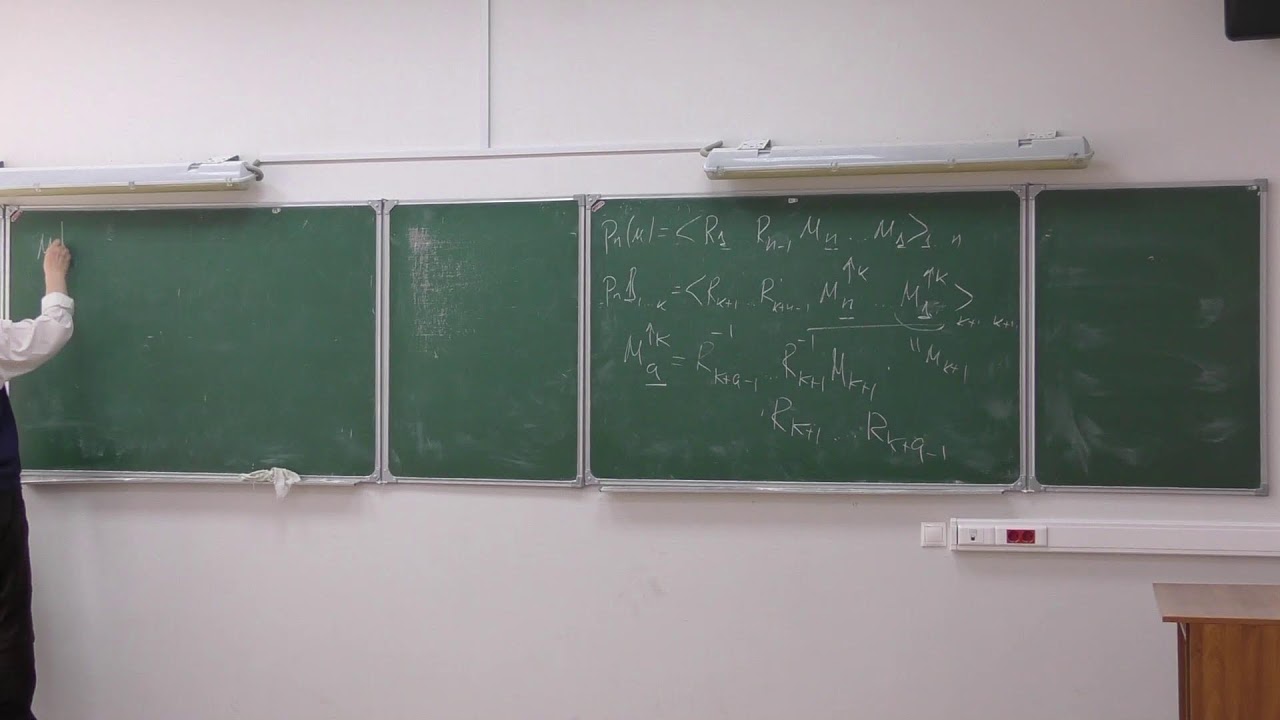 M
p_n(M) = <R_1 R_{n-1} M_n ... M_1>_1 n
p_n 1_{1...k} = <R_{k+1} ... R_{k+n-1} M_n^{↑k} ... M_1^{↑k}>_{k+1 k+n}
M_a^{↑k} = R_{k+a-1}^{-1} ... R_{k+1}^{-1} M_{k+1} · " M_{k+1}
R_{k+1} ... R_{k+a-1}